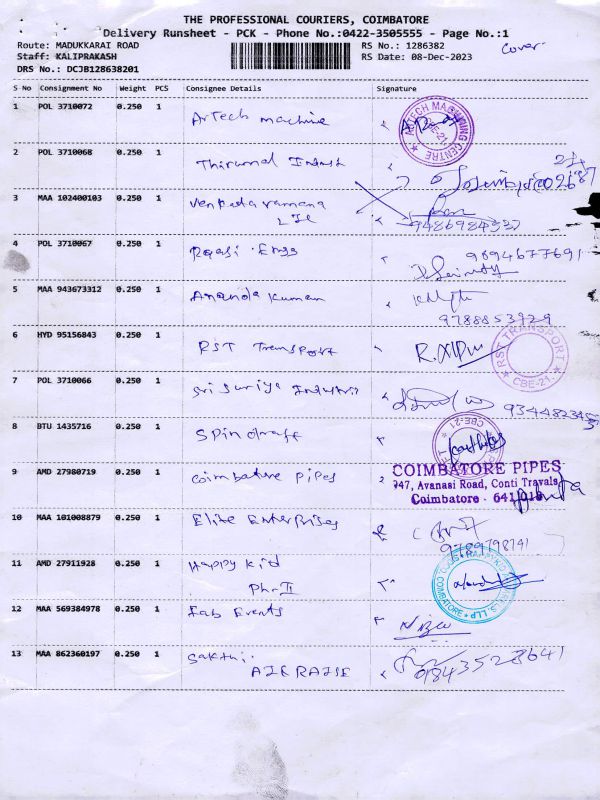 THE PROFESSIONAL COURIERS, COIMBATORE
Delivery Runsheet - PCK - Phone No.:0422-3505555 - Page No.:1
Route: MADUKKARAI ROAD
RS No.: 1286382
Cover
Staff: KALIPRAKASH
RS Date: 08-Dec-2023
DRS No.: DCJB128638201
S No Consignment No Weight PCS Consignee Details Signature
1 POL 3710072 0.250 1 ArTech machine
ARTECH MACHINING CENTRE CBE-21
2 POL 3710068 0.250 1 Thirumal Indust
3 MAA 102400103 0.250 1 Venkataramana
9486984337
4 POL 3710067 0.250 1 Raasi Engg
9894677691
5 MAA 943673312 0.250 1 Ananda kumar
9788853929
6 HYD 95156843 0.250 1 RST Transport
RST TRANSPORT CBE-21
7 POL 3710066 0.250 1 Sri Suriya Industri
8 BTU 1435716 0.250 1 Spindraft
CBE-21
9 AMD 27980719 0.250 1 Coimbatore Pipes
COIMBATORE PIPES
747, Avanasi Road, Conti Travals
Coimbatore - 641018
10 MAA 101008879 0.250 1 Elite Enterprises
9789798141
11 AMD 27911928 0.250 1 Happy kid
Ph-II
COIMBATORE
12 MAA 569384978 0.250 1 Fab Events
13 MAA 862360197 0.250 1 Sakthi
09843523641